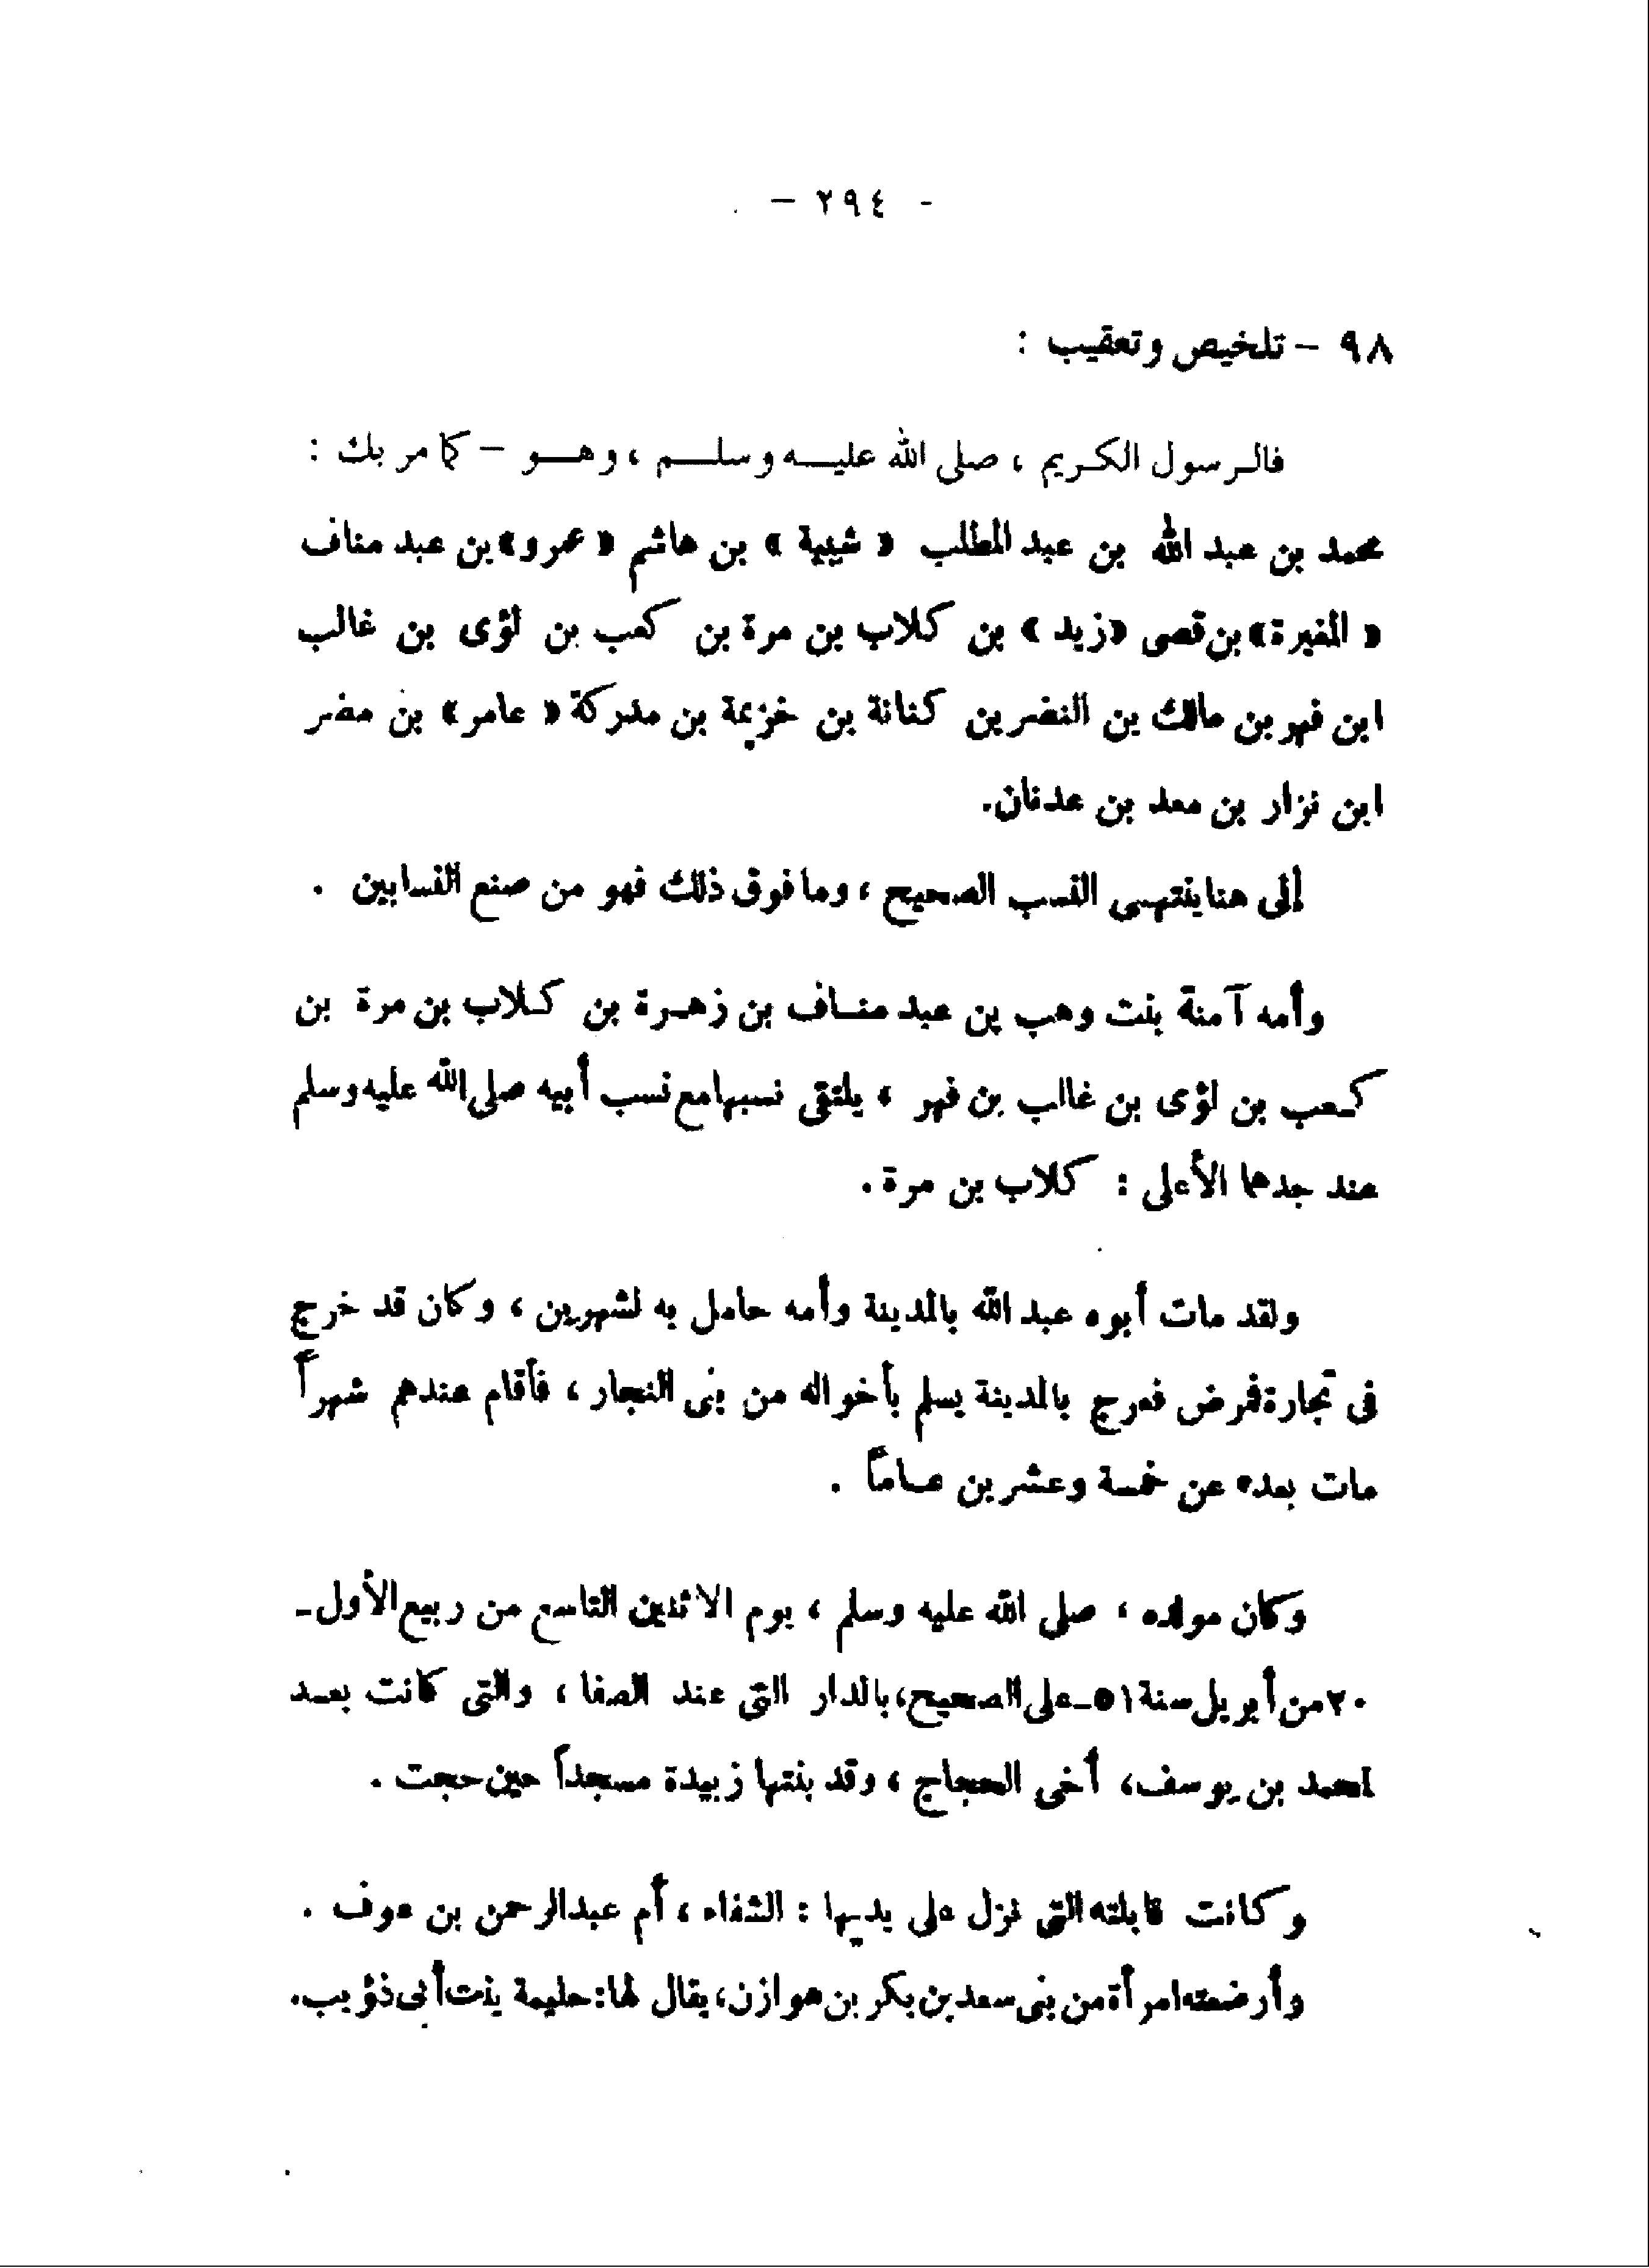 - ٢٩٤ -
٩٨ - تلخيص وتعقيب :
فالرسول الكريم ، صلى الله عليه وسلم ، وهو - كما مر بك :
محمد بن عبد الله بن عبد المطلب « شيبة » بن هاشم « عمرو» بن عبد مناف
« المغيرة» بن قصى «زيد » بن كلاب بن مرة بن كعب بن لؤى بن غالب
ابن فهر بن مالك بن النضر بن كنانة بن خزيمة بن مدركة « عامر» بن مضر
ابن نزار بن معد بن عدنان.
إلى هنا ينتهى النسب الصحيح ، وما فوق ذلك فهو من صنع النسابين .
وأمه آمنة بنت وهب بن عبد مناف بن زهرة بن كلاب بن مرة بن
كعب بن لؤى بن غالب بن فهر ، يلتقى نسبها مع نسب أبيه صلى الله عليه وسلم
عند جدها الأعلى : كلاب بن مرة .
ولقد مات أبوه عبد الله بالمدينة وأمه حامل به لشهرين ، وكان قد خرج
فى تجارة فمرض فعرج بالمدينة يسلم بأخواله من بنى النجار ، فأقام عندهم شهراً
مات بعده عن خمسة وعشرين عاماً .
وكان مولده ، صلى الله عليه وسلم ، يوم الاثنين التاسع من ربيع الأول -
٢٠ من أبريل سنة ٥١ - على الصحيح، بالدار التى عند الصفا ، والتى كانت بعد
لمحمد بن يوسف، أخى الحجاج ، وقد بنتها زبيدة مسجداً حين حجت .
وكانت قابلته التى نزل على يديها : الشفاء ، أم عبد الرحمن بن عوف .
وأرضعته امرأة من بنى سعد بن بكر بن هوازن، يقال لها: حليمة بنت أبى ذؤيب.